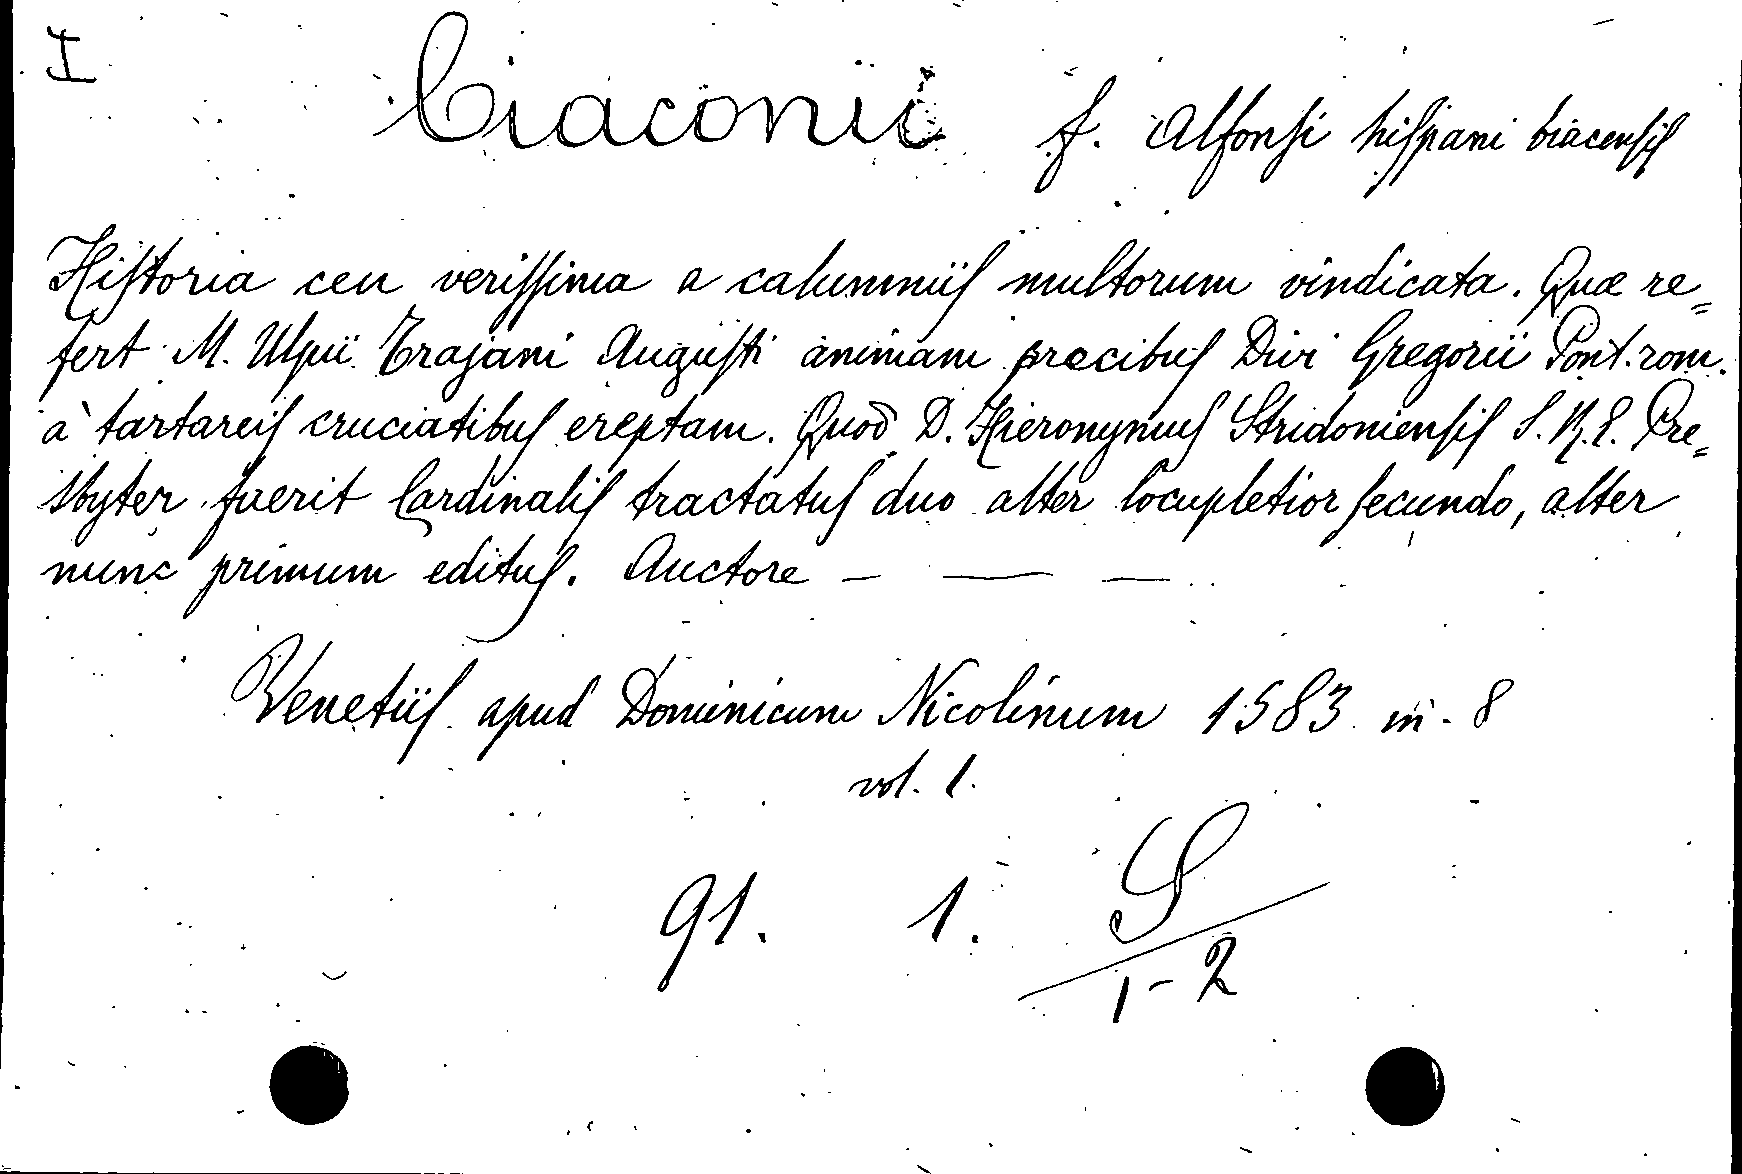 I
Ciaconii f. Alfonsi hispani biacensis
Historia ceu verissima a calumniis multorum vindicata. Quæ re=
fert M. Ulpii Trajani Augusti animam precibus Divi Gregorii Pont. rom.
à tartareis cruciatibus ereptam. Quod D. Hieronymus Stridoniensis S. R. E. Pre=
sbyter fuerit Cardinalis tractatus duo alter locupletior secundo, alter
nunc primum editus. Auctore — — —
Venetiis apud Dominicum Nicolinum 1583 in - 8
vol. 1.
91. 1. S
1-2